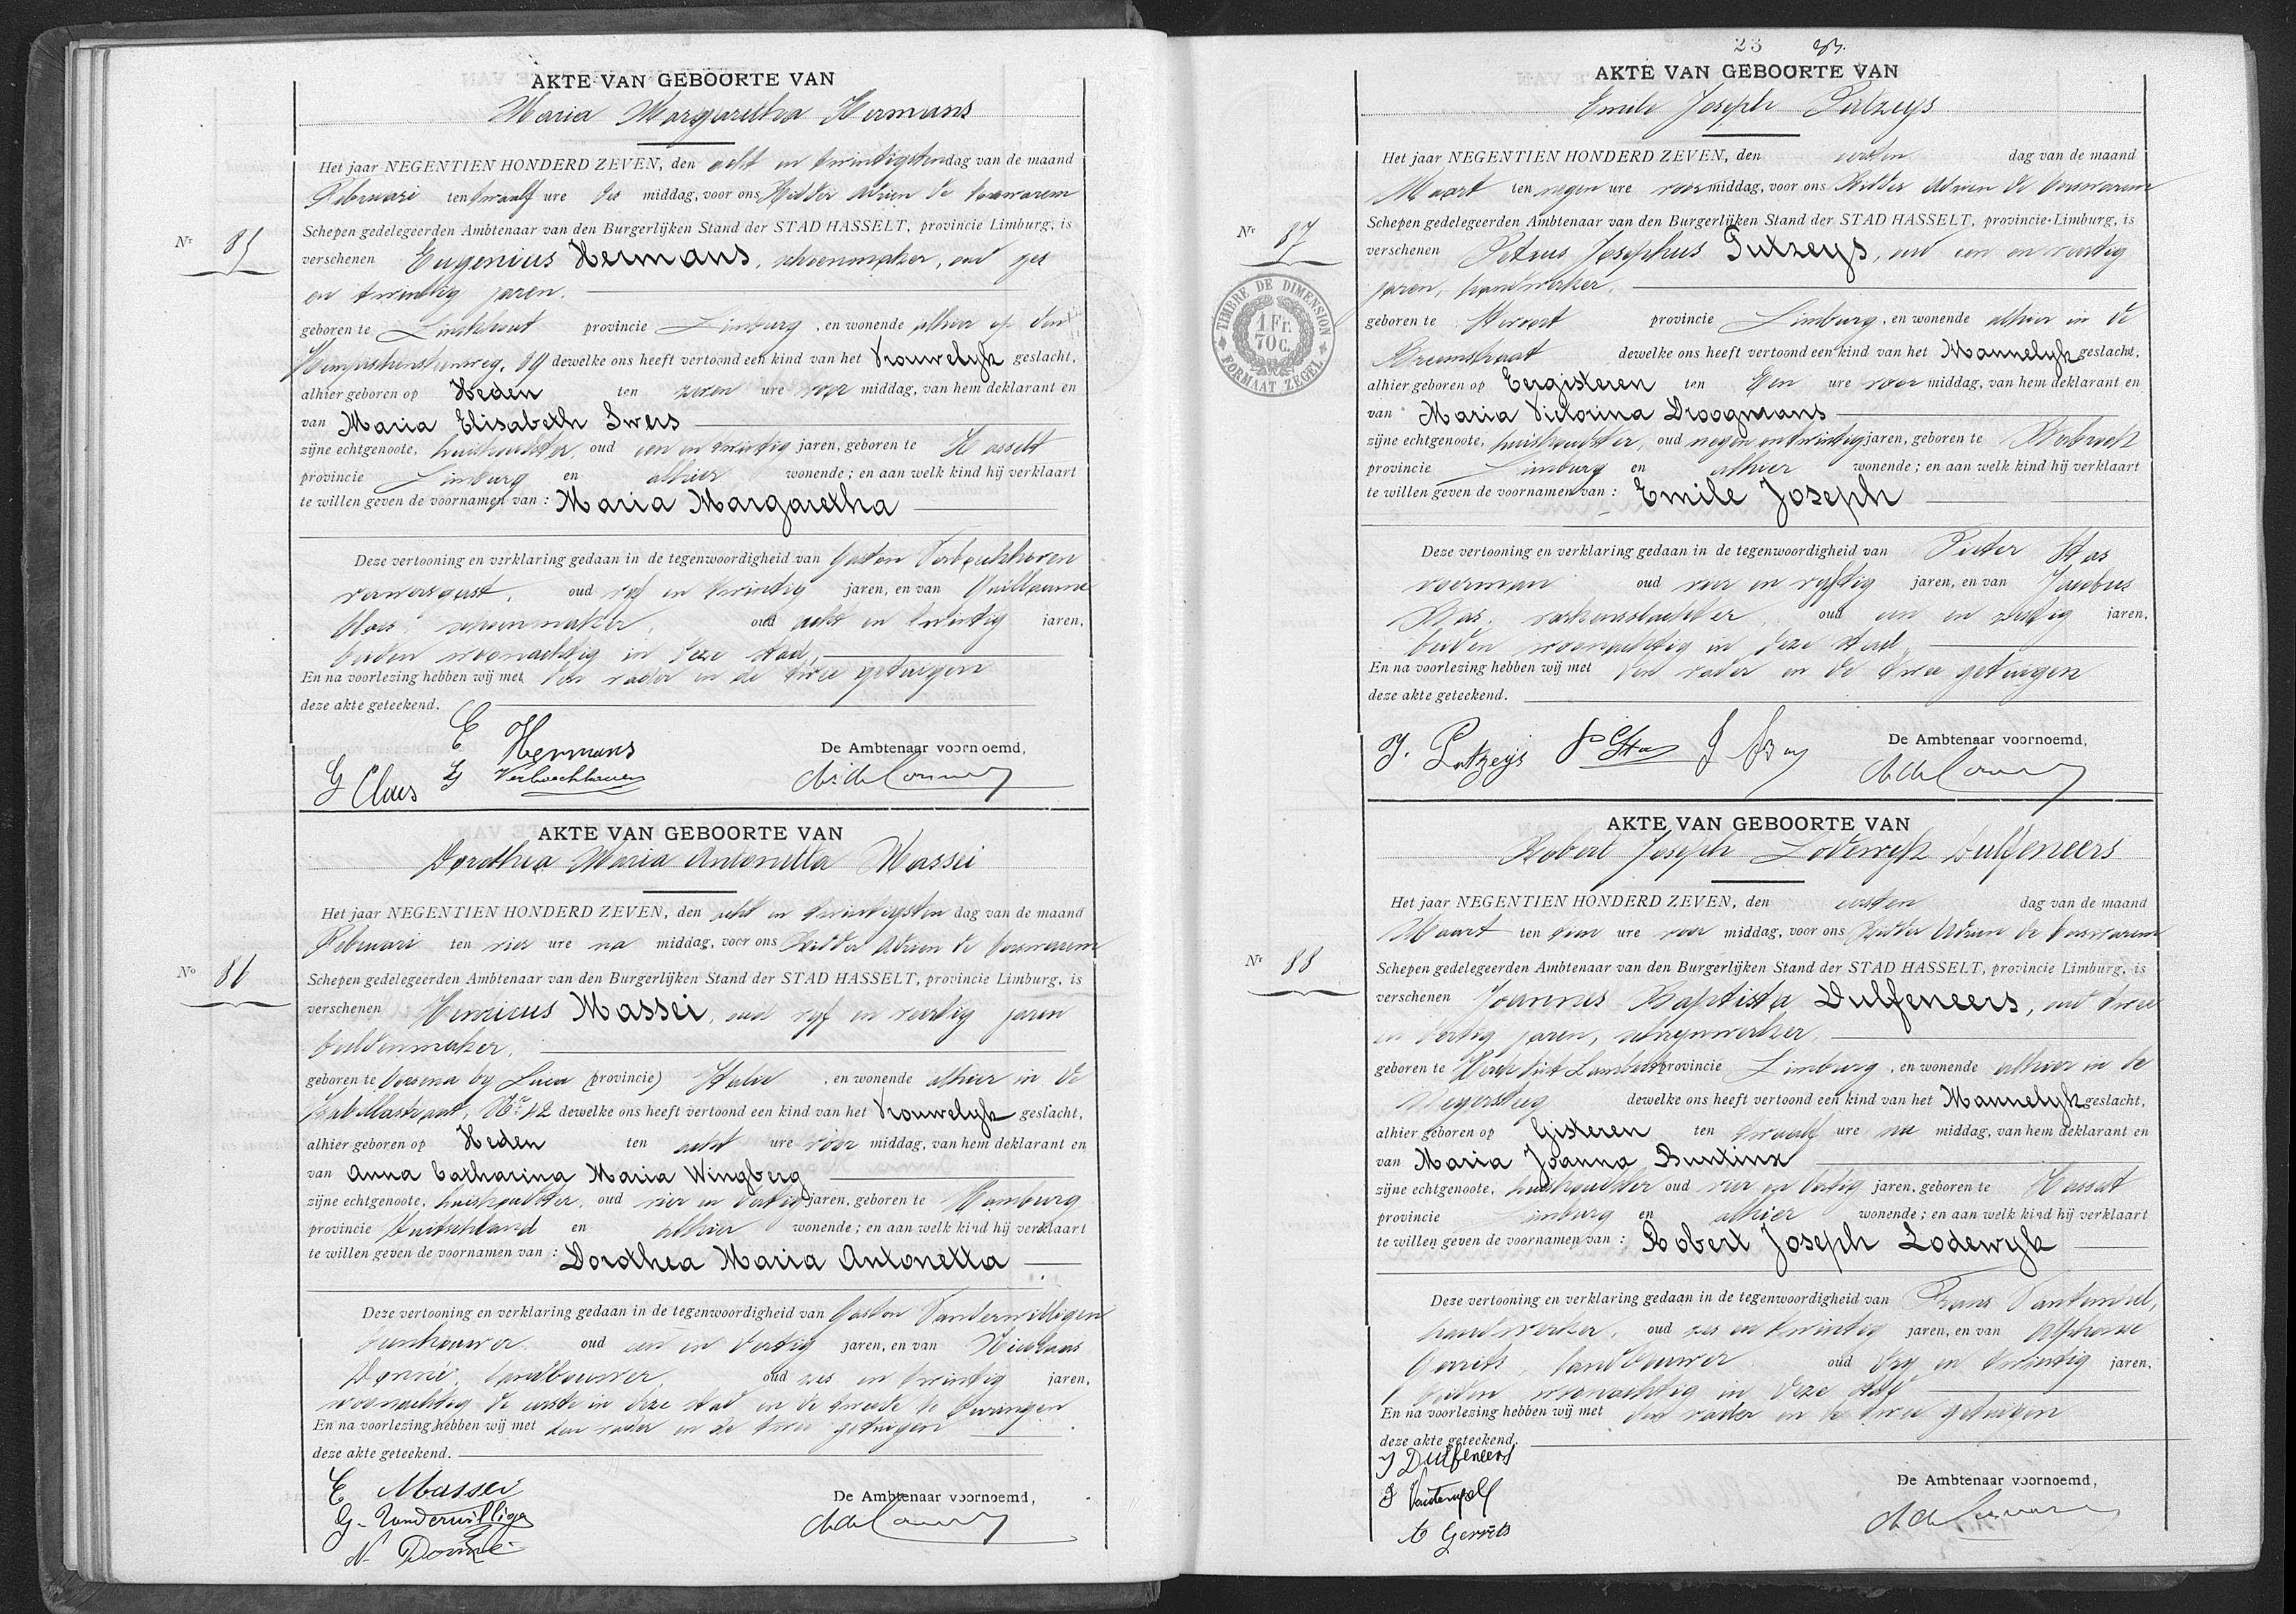 AKTE VAN GEBOORTE VAN
Maria Margaretha Hermans
Het jaar NEGENTIEN HONDERD ZEVEN, den acht en twintigsten dag van de maand
Februari ten twaalf ure des middag, voor ons Ridder Adrien de Corswarem
Schepen gedelegeerden Ambtenaar van den Burgerlijken Stand der STAD HASSELT, provincie Limburg, is
Nr 85
verschenen Eugenius Hermans, schoenmaker, oud zes
en twintig jaren.
geboren te Linckhout provincie Limburg, en wonende alhier op den
69 dewelke ons heeft vertoond een kind van het Vrouwelyk geslacht,
alhier geboren op Heden ten zeven ure voor middag, van hem deklarant en
van Maria Elisabeth Swers
zijne echtgenoote, huishoudster, oud een en twintig jaren, geboren te Hasselt
provincie Limburg en alhier wonende; en aan welk kind hij verklaart
te willen geven de voornamen van : Maria Margaretha
Deze vertooning en verklaring gedaan in de tegenwoordigheid van Gaston Verboeckhoven
oud vyf en twintig jaren, en van Guillaume
Claes schoenmaker, oud acht en twintig jaren,
beiden woonachtig in deze stad,
En na voorlezing hebben wij met den vader en de twee getuigen
deze akte geteekend.
E Hermans
De Ambtenaar voornoemd,
G Claes G Verboeckhoven
AKTE VAN GEBOORTE VAN
Dorothea Maria Antonetta Massei
Het jaar NEGENTIEN HONDERD ZEVEN, den acht en twintigsten dag van de maand
Februari ten vier ure na middag, voor ons Ridder Adrien de Corswarem
No 86
Schepen gedelegeerden Ambtenaar van den Burgerlijken Stand der STAD HASSELT, provincie Limburg, is
verschenen Henricus Massei, oud vyf en veertig jaren
beeldenmaker,
geboren te by Luca (provincie) Italie, en wonende alhier in de
Isabellastraat, Nr 42 dewelke ons heeft vertoond een kind van het Vrouwelyk geslacht,
alhier geboren op Heden ten acht ure voor middag, van hem deklarant en
van Anna Catharina Maria Wingberg
zijne echtgenoote, huishoudster, oud vier en dertig jaren, geboren te Hamburg
provincie Duitschland en alhier wonende; en aan welk kind hij verklaart
te willen geven de voornamen van : Dorothea Maria Antonetta
Deze vertooning en verklaring gedaan in de tegenwoordigheid van Gaston Vanderwilligen
oud een en dertig jaren, en van Nicolaas
Donné, landbouwer, oud zes en twintig jaren,
woonachtig de eerste in deze stad en de tweede te Gorsingen
En na voorlezing hebben wij met den vader en de twee getuigen
deze akte geteekend.
E Massei
De Ambtenaar voornoemd,
G. Vanderwillige
N. Donné
23
AKTE VAN GEBOORTE VAN
Emile Joseph Putzeys
Het jaar NEGENTIEN HONDERD ZEVEN, den eersten dag van de maand
Maart ten negen ure voormiddag, voor ons Ridder Adrien de Corswarem
Schepen gedelegeerden Ambtenaar van den Burgerlijken Stand der STAD HASSELT, provincie Limburg, is
Nr 87
verschenen Petrus Josephus Putzeys, oud een en veertig
jaren, handwerker,
TIMBRE DE DIMENSION
1 Fr. 70 C.
FORMAAT ZEGEL
geboren te Stevort provincie Limburg, en wonende alhier in de
dewelke ons heeft vertoond een kind van het Mannelyk geslacht,
alhier geboren op Eergisteren ten Een ure voor middag, van hem deklarant en
van Maria Victorina Droogmans
zijne echtgenoote, huishoudster, oud negen en twintig jaren, geboren te Berbroek
provincie Limburg en alhier wonende; en aan welk kind hij verklaart
te willen geven de voornamen van : Emile Joseph
Deze vertooning en verklaring gedaan in de tegenwoordigheid van Pieter Stas
voerman oud vier en vyftig jaren, en van Jacobus
Bas, oud een en zestig jaren,
beiden woonachtig in deze stad,
En na voorlezing hebben wij met den vader en de twee getuigen
deze akte geteekend.
J. Putzeys P Stas J Bas
De Ambtenaar voornoemd,
AKTE VAN GEBOORTE VAN
Robert Joseph Lodewyk Dulfeneers
Het jaar NEGENTIEN HONDERD ZEVEN, den eersten dag van de maand
Maart ten tien ure voor middag, voor ons Ridder Adrien de Corswarem
Nr 88
Schepen gedelegeerden Ambtenaar van den Burgerlijken Stand der STAD HASSELT, provincie Limburg, is
verschenen Joannes Baptista Dulfeneers, oud twee
en dertig jaren, schrynwerker,
geboren te Herck Sint Lambert provincie Limburg, en wonende alhier in de
dewelke ons heeft vertoond een kind van het Mannelyk geslacht,
alhier geboren op Gisteren ten twaalf ure na middag, van hem deklarant en
van Maria Joanna Buntinx
zijne echtgenoote, huishoudster oud vier en dertig jaren, geboren te Hasselt
provincie Limburg en alhier wonende; en aan welk kind hij verklaart
te willen geven de voornamen van : Robert Joseph Lodewyk
Deze vertooning en verklaring gedaan in de tegenwoordigheid van Frans Vantendel,
handwerker, oud zes en twintig jaren, en van Alphonse
Gerrits, landbouwer oud dry en twintig jaren,
beiden woonachtig in deze stad
En na voorlezing hebben wij met den vader en de twee getuigen
deze akte geteekend.
J Dulfeneers
De Ambtenaar voornoemd,
A Gerrits